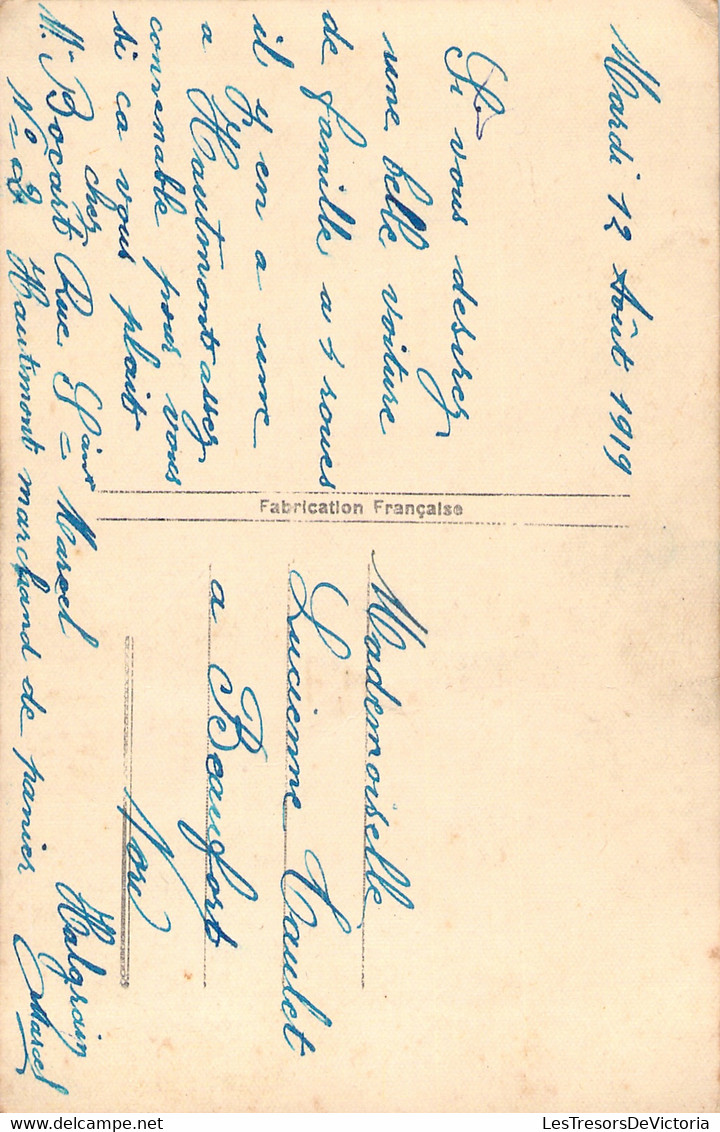 Mardi 12 Août 1919
Si vous desirez
une belle voiture
de famille a 4 roues
il y en a une
a Hautmont assez
convenable pour vous
si ca vous plait
chez
Mr Bocart Rue St Marcel
No 3 Hautmont marchand de panier
Halgrain
Marcel
Fabrication Française
Mademoiselle
Lucienne Caulet
a Beaufort
Nord
LesTresorsDeVictoria